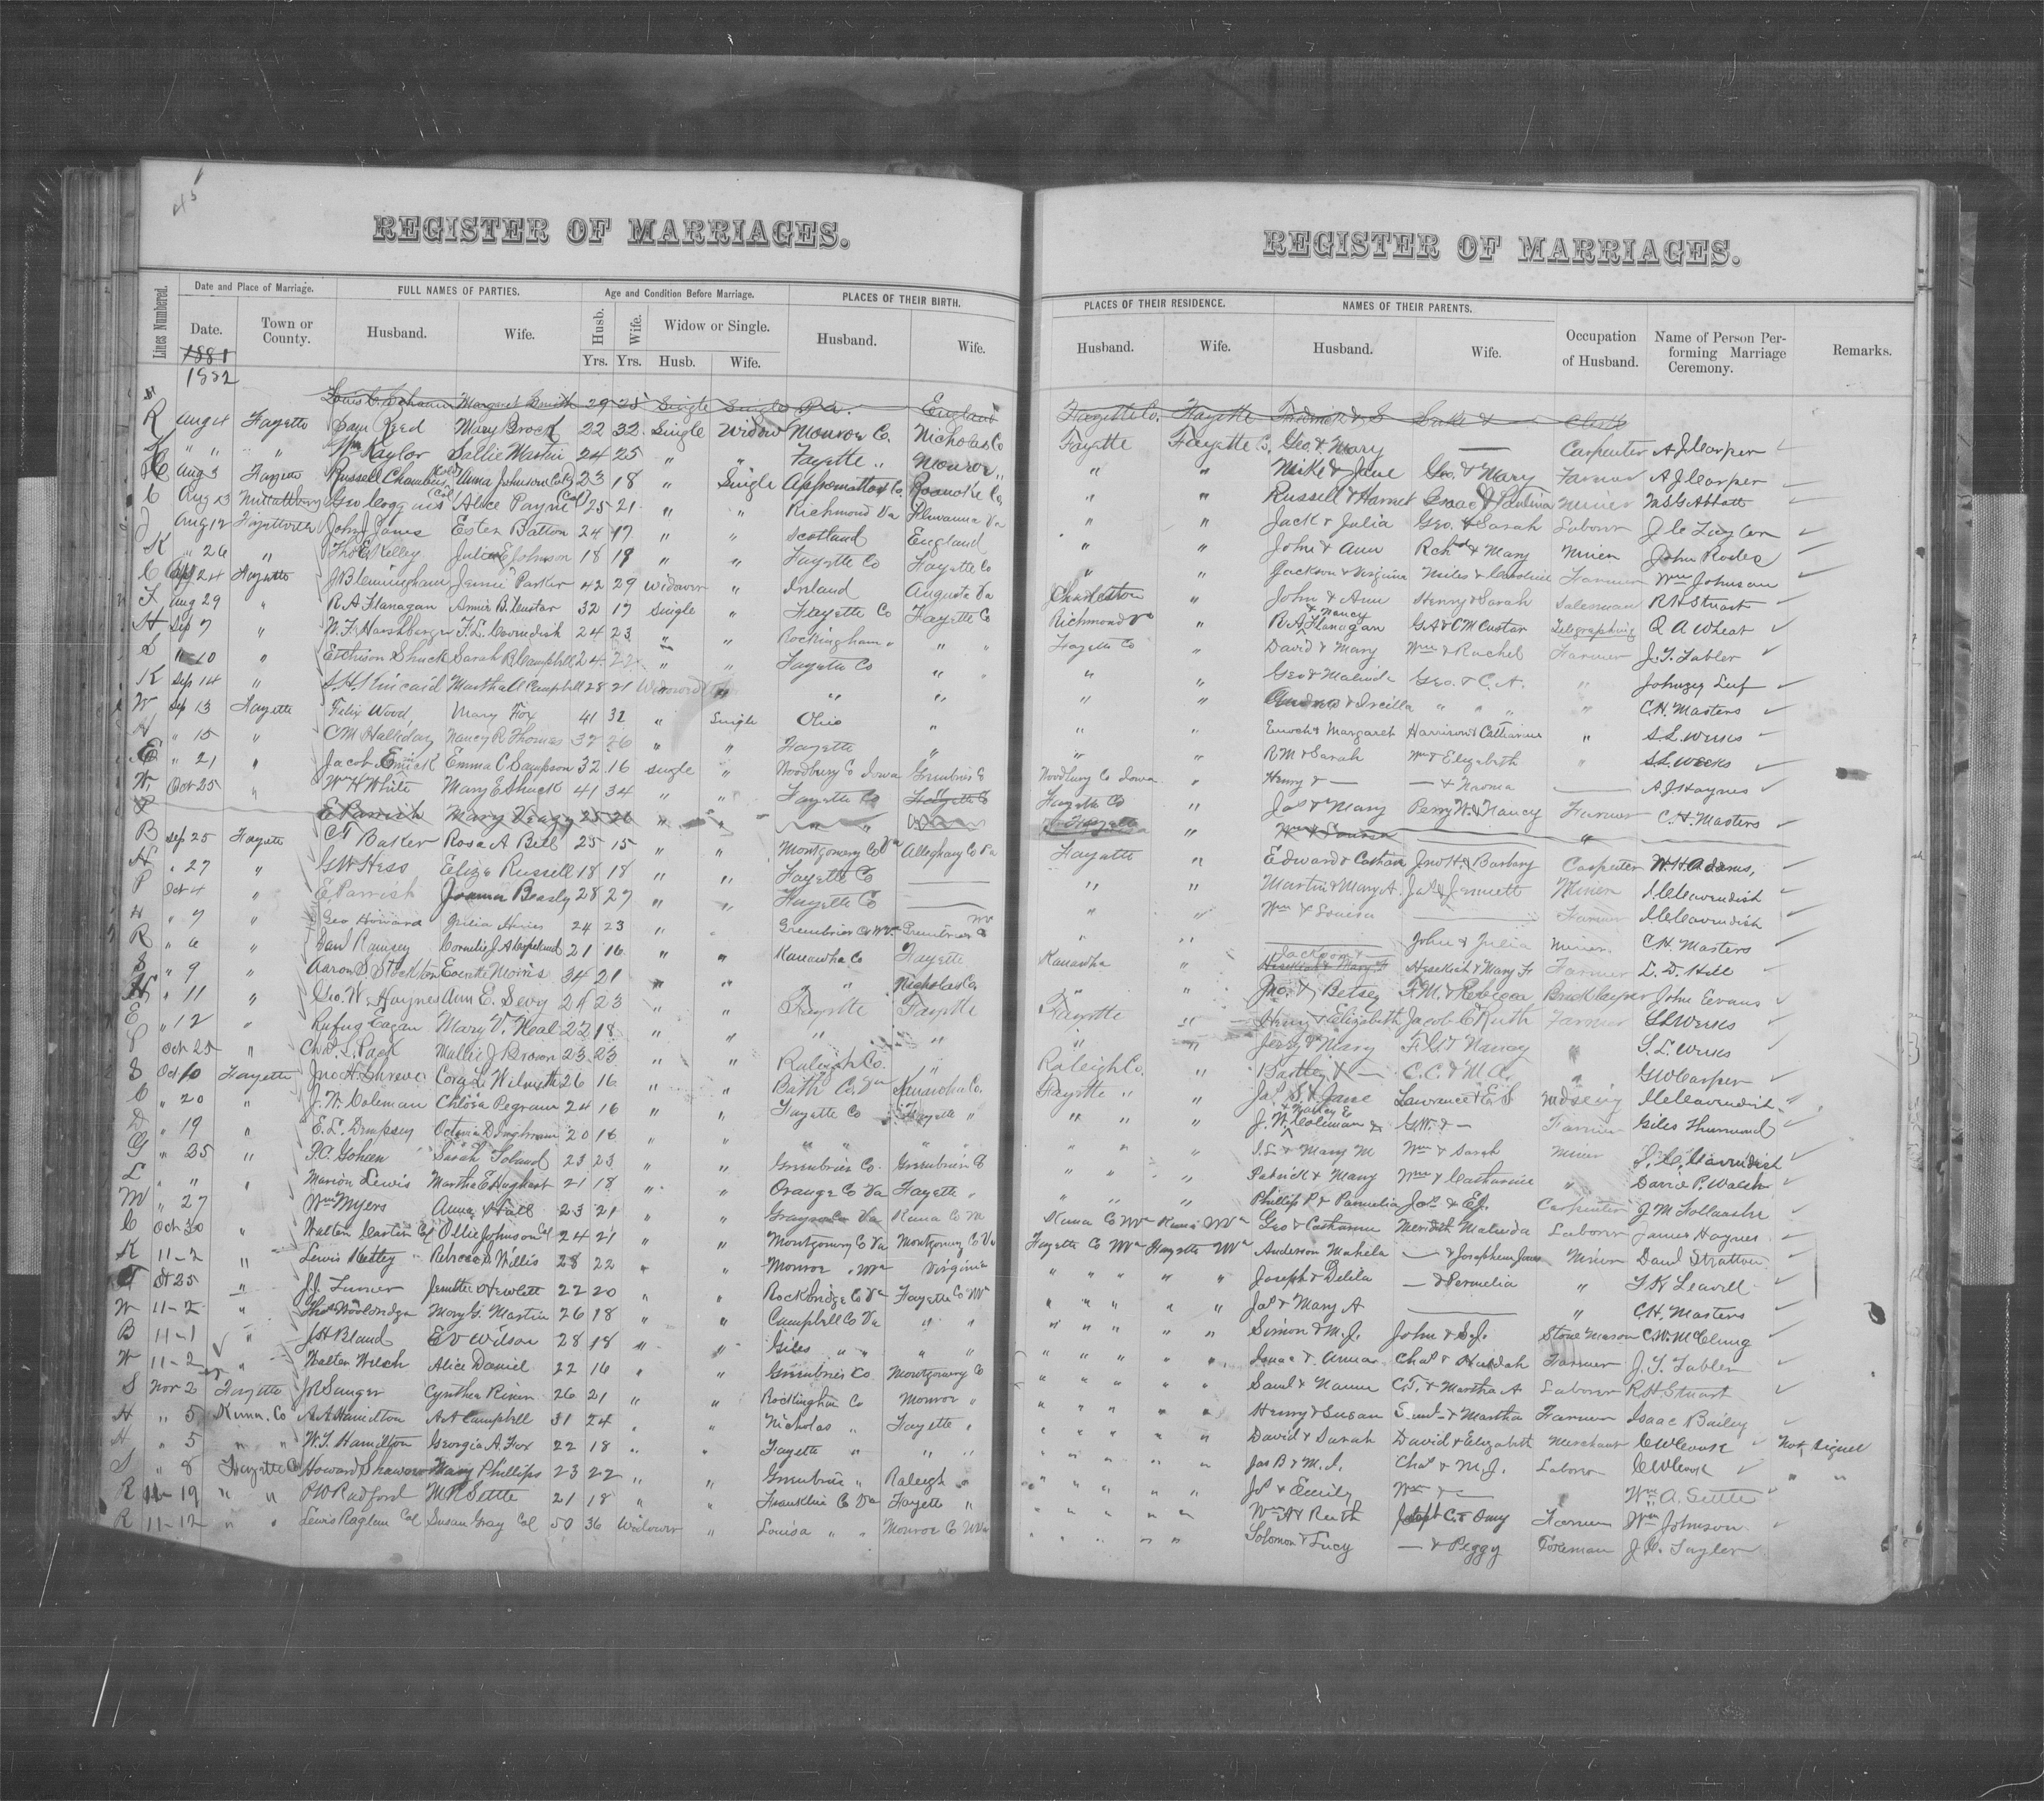 45
REGISTER OF MARRIAGES.
REGISTER OF MARRIAGES.
Lines Numbered.
Date and Place of Marriage.
FULL NAMES OF PARTIES.
Age and Condition Before Marriage.
PLACES OF THEIR BIRTH.
PLACES OF THEIR RESIDENCE.
NAMES OF THEIR PARENTS.
Date. Town or County. Husband. Wife. Husb. Wife. Widow or Single. Husband. Wife. Husband. Wife. Husband. Wife. Occupation of Husband. Name of Person Performing Marriage Ceremony. Remarks.
Yrs. Yrs. Husb. Wife.
1881
1882
Margaret Smith 29 28 Single Single Pa. England Fayette Co. Fayette Clerk
R Aug 4 Fayette Sam Reed Mary Brock 22 32 Single Widow Monroe Co. Nicholas Co Fayette Fayette Co, Geo. & Mary — Carpenter A J Carper
K " " " Wm Kaylor Sallie Martin 24 25 " " Fayette " Monroe " " " Mike & Jane Geo. & Mary Farmer A. J. Carper
C Aug 3 Fayette Russell Chambers Cold Anna Johnson Cold 23 18 " Single Appomattox Co. Roanoke Co " " Russell & Harriet Isaac & Paulina Miner
C Aug 13 Geo Coggins (Col) Alice Payne (Col) 25 21 " " Richmond Va Fluvanna Va " " Jack & Julia Geo. & Sarah Laborer J C Taylor
J Aug 12 Fayetteville John J Jones Ester Batton 24 17 " " Scotland England " " John & Ann Rchd & Mary Miner John Rodes
K " 26 " Thos E Kelley Julia E Johnson 18 19 " " Fayette Co Fayette Co " " Jackson & Virginia Miles & Caroline Farmer Wm Johnson
C 24 Fayette J Blemingham Jennie Parker 42 29 Widower " Ireland Augusta Va Charleston " John & Ann Henry & Sarah Salesman R H Stuart
F Aug 29 " R. A Flanagan Annie B. Custar 32 17 Single " Fayette Co Fayette Co Richmond Va " R. A & Nancy Flanagan G A & C M Custar Telegraphing Q A Wheat
H Sep 7 " W. F. Harshberger F. L. Cavendish 24 23 " " Rockingham " " " Fayette Co " David & Mary Wm & Rachel Farmer J. T. Tabler
S " 10 " Etchison Shuck Sarah B Campbell 24 22 " " Fayette Co " " " " Geo & Malinda Geo. & C. A. "
K Sep 14 " S. H. Kincaid Martha C Campbell 28 21 " " " " " " " " " C. H. Masters
W Sep 13 Fayette Felix Wood, Mary Fox 41 32 " Single Ohio " " " Enoch & Margaret Harrison & Catharine " S. L. Weeks
H " 15 " C M Halliday Nancy R Thomas 37 26 " " Fayette " " " R M & Sarah Wm & Elizabeth " S. L. Weeks
E " 21 " Jacob Emick Emma C. Sampson 32 16 single " Woodbury Co Iowa Greenbrier Co Woodbury Co Iowa " Henry & — — & Naoma — A J Haynes
W. Oct 25 " Wm H White Mary E Shuck 41 34 " " Fayette Co Fayette Co Fayette Co " Jas & Mary Perry W. & Nancy Farmer C. H. Masters
P E Parrish Mary 25 26 " " " " Fayette " Wm & Louisa "
B Sep 25 Fayette C T Baker Rosa A Bell 25 15 " " Montgomery Co Va Alleghany Co Va Fayette " Edward & Jno H. & Barbary Carpenter W. H. Adams,
H " 27 " G W Hess Eliza Russell 18 18 " " Fayette Co — " " Martin & Mary A. Jas & Jennett Miner Cavendish
P Oct 4 " E Parrish Joanna Beasly 28 27 " " Fayette Co — " " Wm & Louisa — Farmer Cavendish
H " 7 " Geo Howard Julia Hines 24 23 " " Greenbrier Co WVa Greenbrier Co Wv " " — John & Julia Miner. C. H. Masters
R " 6 " Saml Ramsey Cornelia J A Copeland 21 16 " " Kanawha Co Fayette Kanawha " Jackson & Hesekiah & Mary F Farmer L. D. Hill
S " 9 " Aaron S Stockton Morris 34 21 " " " " Nicholas Co. " " Jno. & Betsey F. M. & Rebecca Brick layer John Evans
H " 11 " Geo. W. Haynes Ann E. Sevy 21 23 " " Fayette Fayette Fayette " Henry & Elizabeth Jacob & Ruth Farmer S L Weeks
E " 12 " Rufus Eagan Mary V. Neal 22 18 " " " " " " Jerry & Mary F. G. & Nancy " S. L. Weeks
P Oct 25 " Chas. L. Pack Mallie J Brown 23 23 " " Raleigh Co. " Raleigh Co. " Bartley & — C. C. & M A. " G W Carper
S Oct 10 Fayette Jno H. Shreve Cora L. Wilmoth 26 16 " " Bath Co. Va Kanawha Co. Fayette " " Jas. S. & Jane Lawrence & E. S Cavendish
C " 20 " J. W. Coleman Chlosa Pegram 24 16 " " Fayette Co Fayette " " " " J. W. & Nancy E Coleman G. W. & — Farmer Giles Thurmond
D " 19 " E. L. Dempsey Octavia 20 16 " " " " " " " " & Mary M Wm & Sarah Miner Cavendish
G " 25 " P. C. Goheen Sarah Toland 23 23 " " Greenbrier Co. Greenbrier Co " " " Patrick & Mary Wm & Catharine " David P. Walsh
L " " " Marion Lewis Martha E Hughart 21 18 " " Orange Co Va Fayette " " " " Phillip P. & Permelia Jos. & E J. Carpenter J M Follansbee
M " 27 " Wm Myers Anna Hall 23 21 " " Grayson Co Va Kana Co W Kana Co Wva Kana Wva Geo & Catharine Meridith Malinda Laborer James Haynes
C Oct 30 " Walten Carter Col Ollie Johnson Col 24 21 " " Montgomery Co Va Montgomery Co Va Fayette Co Wva Fayette Wva Anderson Mahela — & Josephene Jones Miner Danl Stratton
K 11-2 " Lewis Ketley Rebecca Willis 28 22 " " Monroe " Wva Virginia " " " " Joseph & Delila — & Permelia " T H Leavell
T Oct 25 " J. J. Turner Hewlett 22 20 " " Rockbridge Co Va Fayette Co Wv " " " " Jas & Mary A — " C. H. Masters
W 11-2 " Thos Wooldridge Mary G. Martin 26 18 " " Campbell Co Va " " " " " " Simon & M. J. John & S. J. Stone Mason C. W. McClung
B 11-1 " J H Bland E V Wilson 28 18 " " Giles " " " " " " " " Isaac & Anna Chas & Huldah Farmer J. T. Tabler
W 11-2 " Walten Welch Alice Daniel 22 16 " " Greenbrier Co Montgomery Co " " " " Saml & Nannie C. T. & Martha A Laborer R. H Stuart
S Nov 2 Fayette J R Sanger Cynthia Riner 26 21 " " Rockingham Co Monroe " " " " " Henry & Susan & Martha Farmer Isaac Bailey
H " 5 Kana. Co A. A Hamilton A A Campbell 31 24 " " Nicholas " Fayette " " " " " David & Sarah David & Elizabeth Merchant C W Cook Not Signed
H " 5 " " W. T. Hamilton Georgia A. Fox 22 18 " " Fayette " " " " " " " Jas B & M. J. Chas & M. J. Laborer C W Cook " "
S " 8 Fayette Co Howard Shawver Mary Phillips 23 22 " " Greenbrier " Raleigh " " " " " Js & Emily Wm & — Wm A. Settle
R 11-19 " " P W Radford M R Settle 21 18 " " Franklin Co Va Fayette " " " " " Wm A & Ruth C & Amy Farmer Wm Johnson
R 11-12 " " Lewis Raglan Col Susan Gray Col 50 36 Widower " Louisa " " Monroe Co WVa " " " " Solomon & Lucy — & Peggy Foreman J. C. Taylor